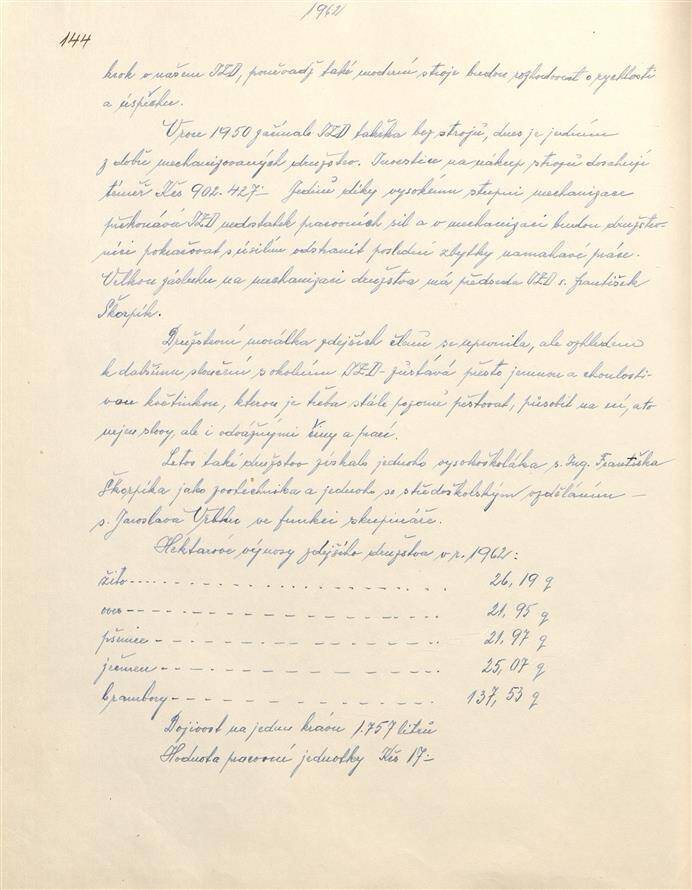 1962
144
krok v našem JZD, poněvadž také moderní stroje budou rozhodovat o rychlosti
a úspěchu.
V roce 1950 začínalo JZD takřka bez strojů, dnes je jedním
z dobře mechanizovaných družstev. Investice na nákup strojů dosahují
téměř Kčs 902.427.- Jedině díky vysokému stupni mechanizace
překonává JZD nedostatek pracovních sil a v mechanizaci budou družstev-
níci pokračovat s úsilím odstranit poslední zbytky namahavé práce.
Velkou zásluhu na mechanizaci družstva má předseda JZD s. František
Škorpík.
Družstevní morálka zdejších členů se upevnila, ale vzhledem
k dalšímu sloučení s okolním JZD - zůstává přesto jemnou a choulosti-
vou květinkou, kterou je třeba stále pozorně pěstovat, působit na ni, a to
nejen slovy, ale i odvážnými činy a prací.
Letos také družstvo získalo jednoho vysokoškoláka s. Ing. Františka
Škorpíka jako zootechnika a jednoho se středoškolským vzděláním -
s. Jaroslava ve funkci skupináře.
Hektarové výnosy zdejšího družstva v r. 1962:
žito 26,19 q
oves 21,95 q
pšenice 21,97 q
ječmen 25,07 q
brambory 137,53 q
Dojivost na jednu krávu 1.757 litrů
Hodnota pracovní jednotky Kčs 17.-